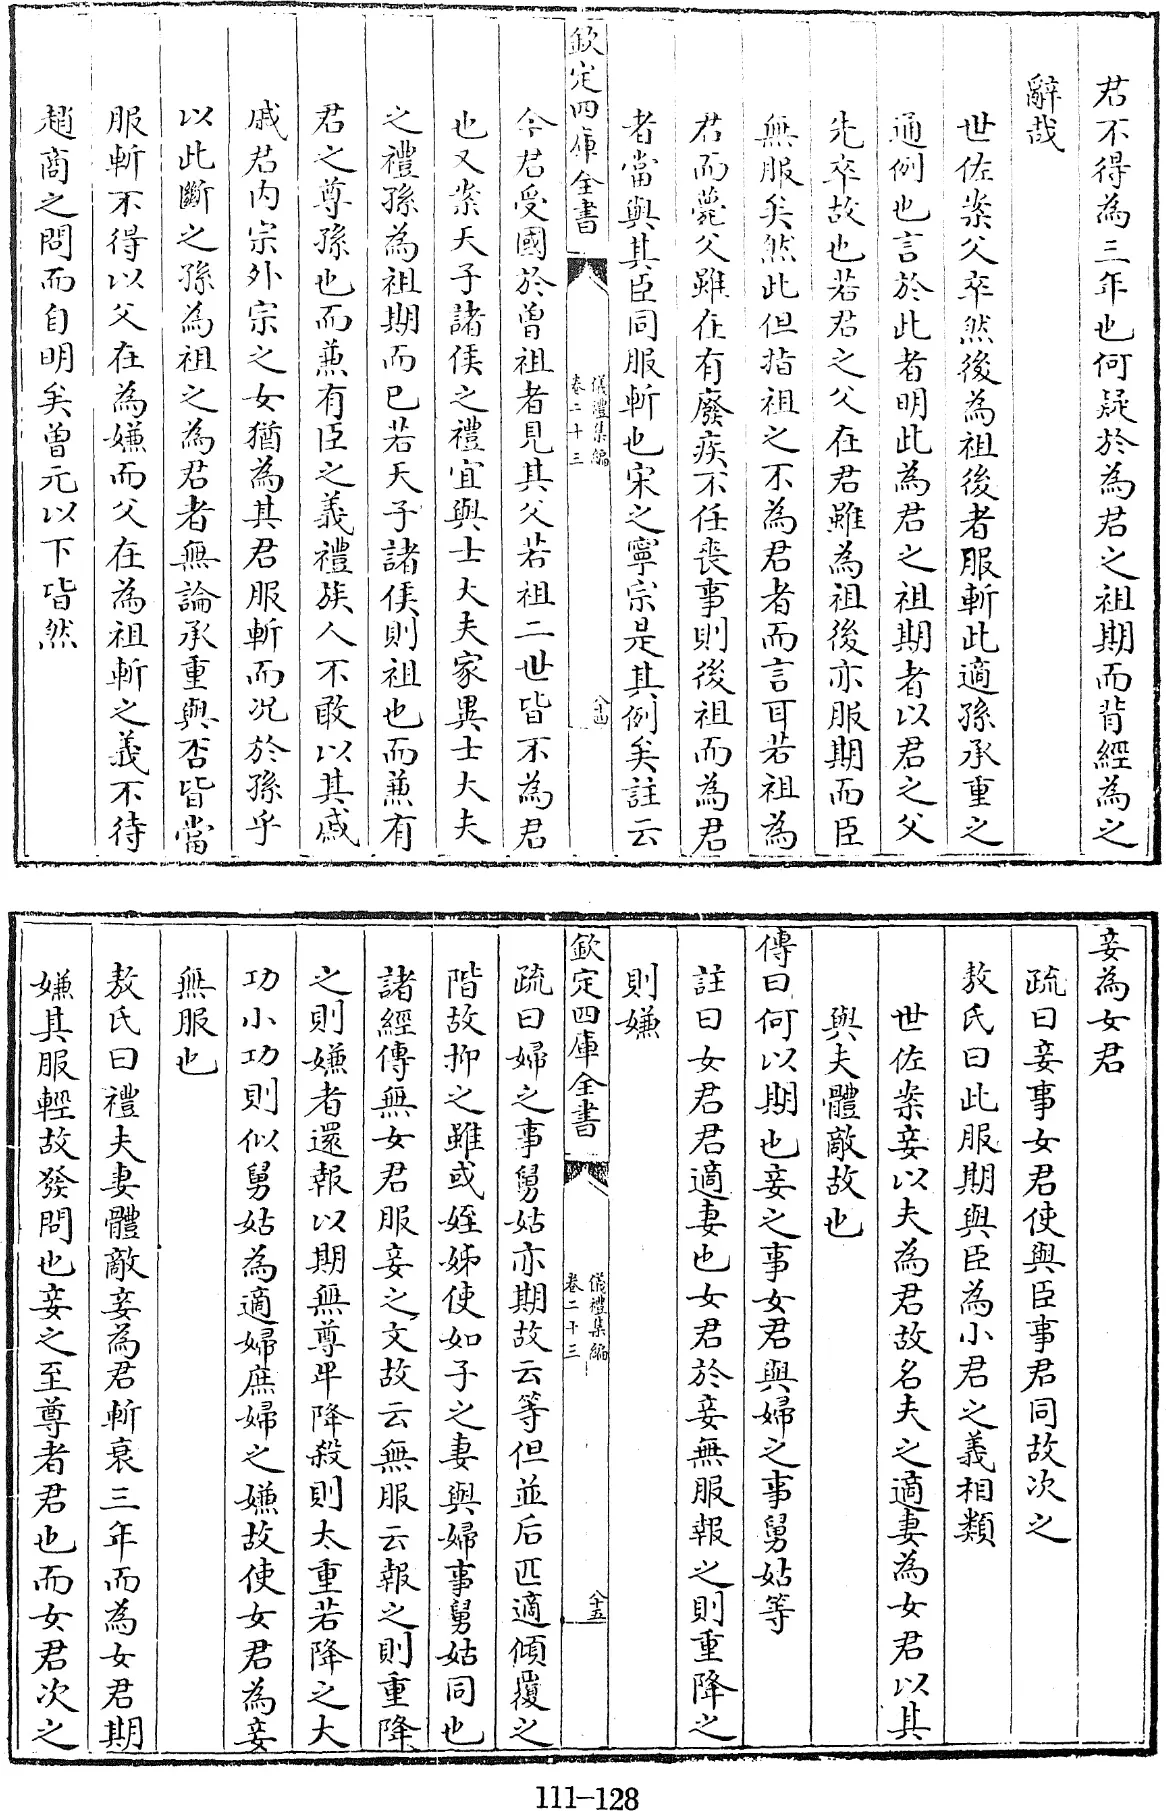 君不得為三年也何疑於為君之祖期而背經為之
辭哉
世佐案父卒然後為祖後者服斬此適孫承重之
通例也言於此者明此為君之祖期者以君之父
先卒故也若君之父在君雖為祖後亦服期而臣
無服矣然此但指祖之不為君者而言耳若祖為
君而薨父雖在有廢疾不任喪事則後祖而為君
者當與其臣同服斬也宋之寧宗是其例矣註云
欽定四庫全書
儀禮集編
卷二十三
八十四
今君受國於曾祖者見其父若祖二世皆不為君
也又案天子諸侯之禮宜與士大夫家異士大夫
之禮孫為祖期而已若天子諸侯則祖也而兼有
君之尊孫也而兼有臣之義禮族人不敢以其戚
戚君内宗外宗之女猶為其君服斬而况於孫乎
以此斷之孫為祖之為君者無論承重與否皆當
服斬不得以父在為嫌而父在為祖斬之義不待
趙商之問而自明矣曾元以下皆然
妾為女君
疏曰妾事女君使與臣事君同故次之
敖氏曰此服期與臣為小君之義相類
世佐案妾以夫為君故名夫之適妻為女君以其
與夫體敵故也
傳曰何以期也妾之事女君與婦之事舅姑等
註曰女君君適妻也女君於妾無服報之則重降之
則嫌
欽定四庫全書
儀禮集編
卷二十三
八十五
疏曰婦之事舅姑亦期故云等但並后匹適傾覆之
階故抑之雖或姪娣使如子之妻與婦事舅姑同也
諸經傳無女君服妾之文故云無服云報之則重降
之則嫌者還報以期無尊卑降殺則太重若降之大
功小功則似舅姑為適婦庶婦之嫌故使女君為妾
無服也
敖氏曰禮夫妻體敵妾為君斬衰三年而為女君期
嫌其服輕故發問也妾之至尊者君也而女君次之
111-128